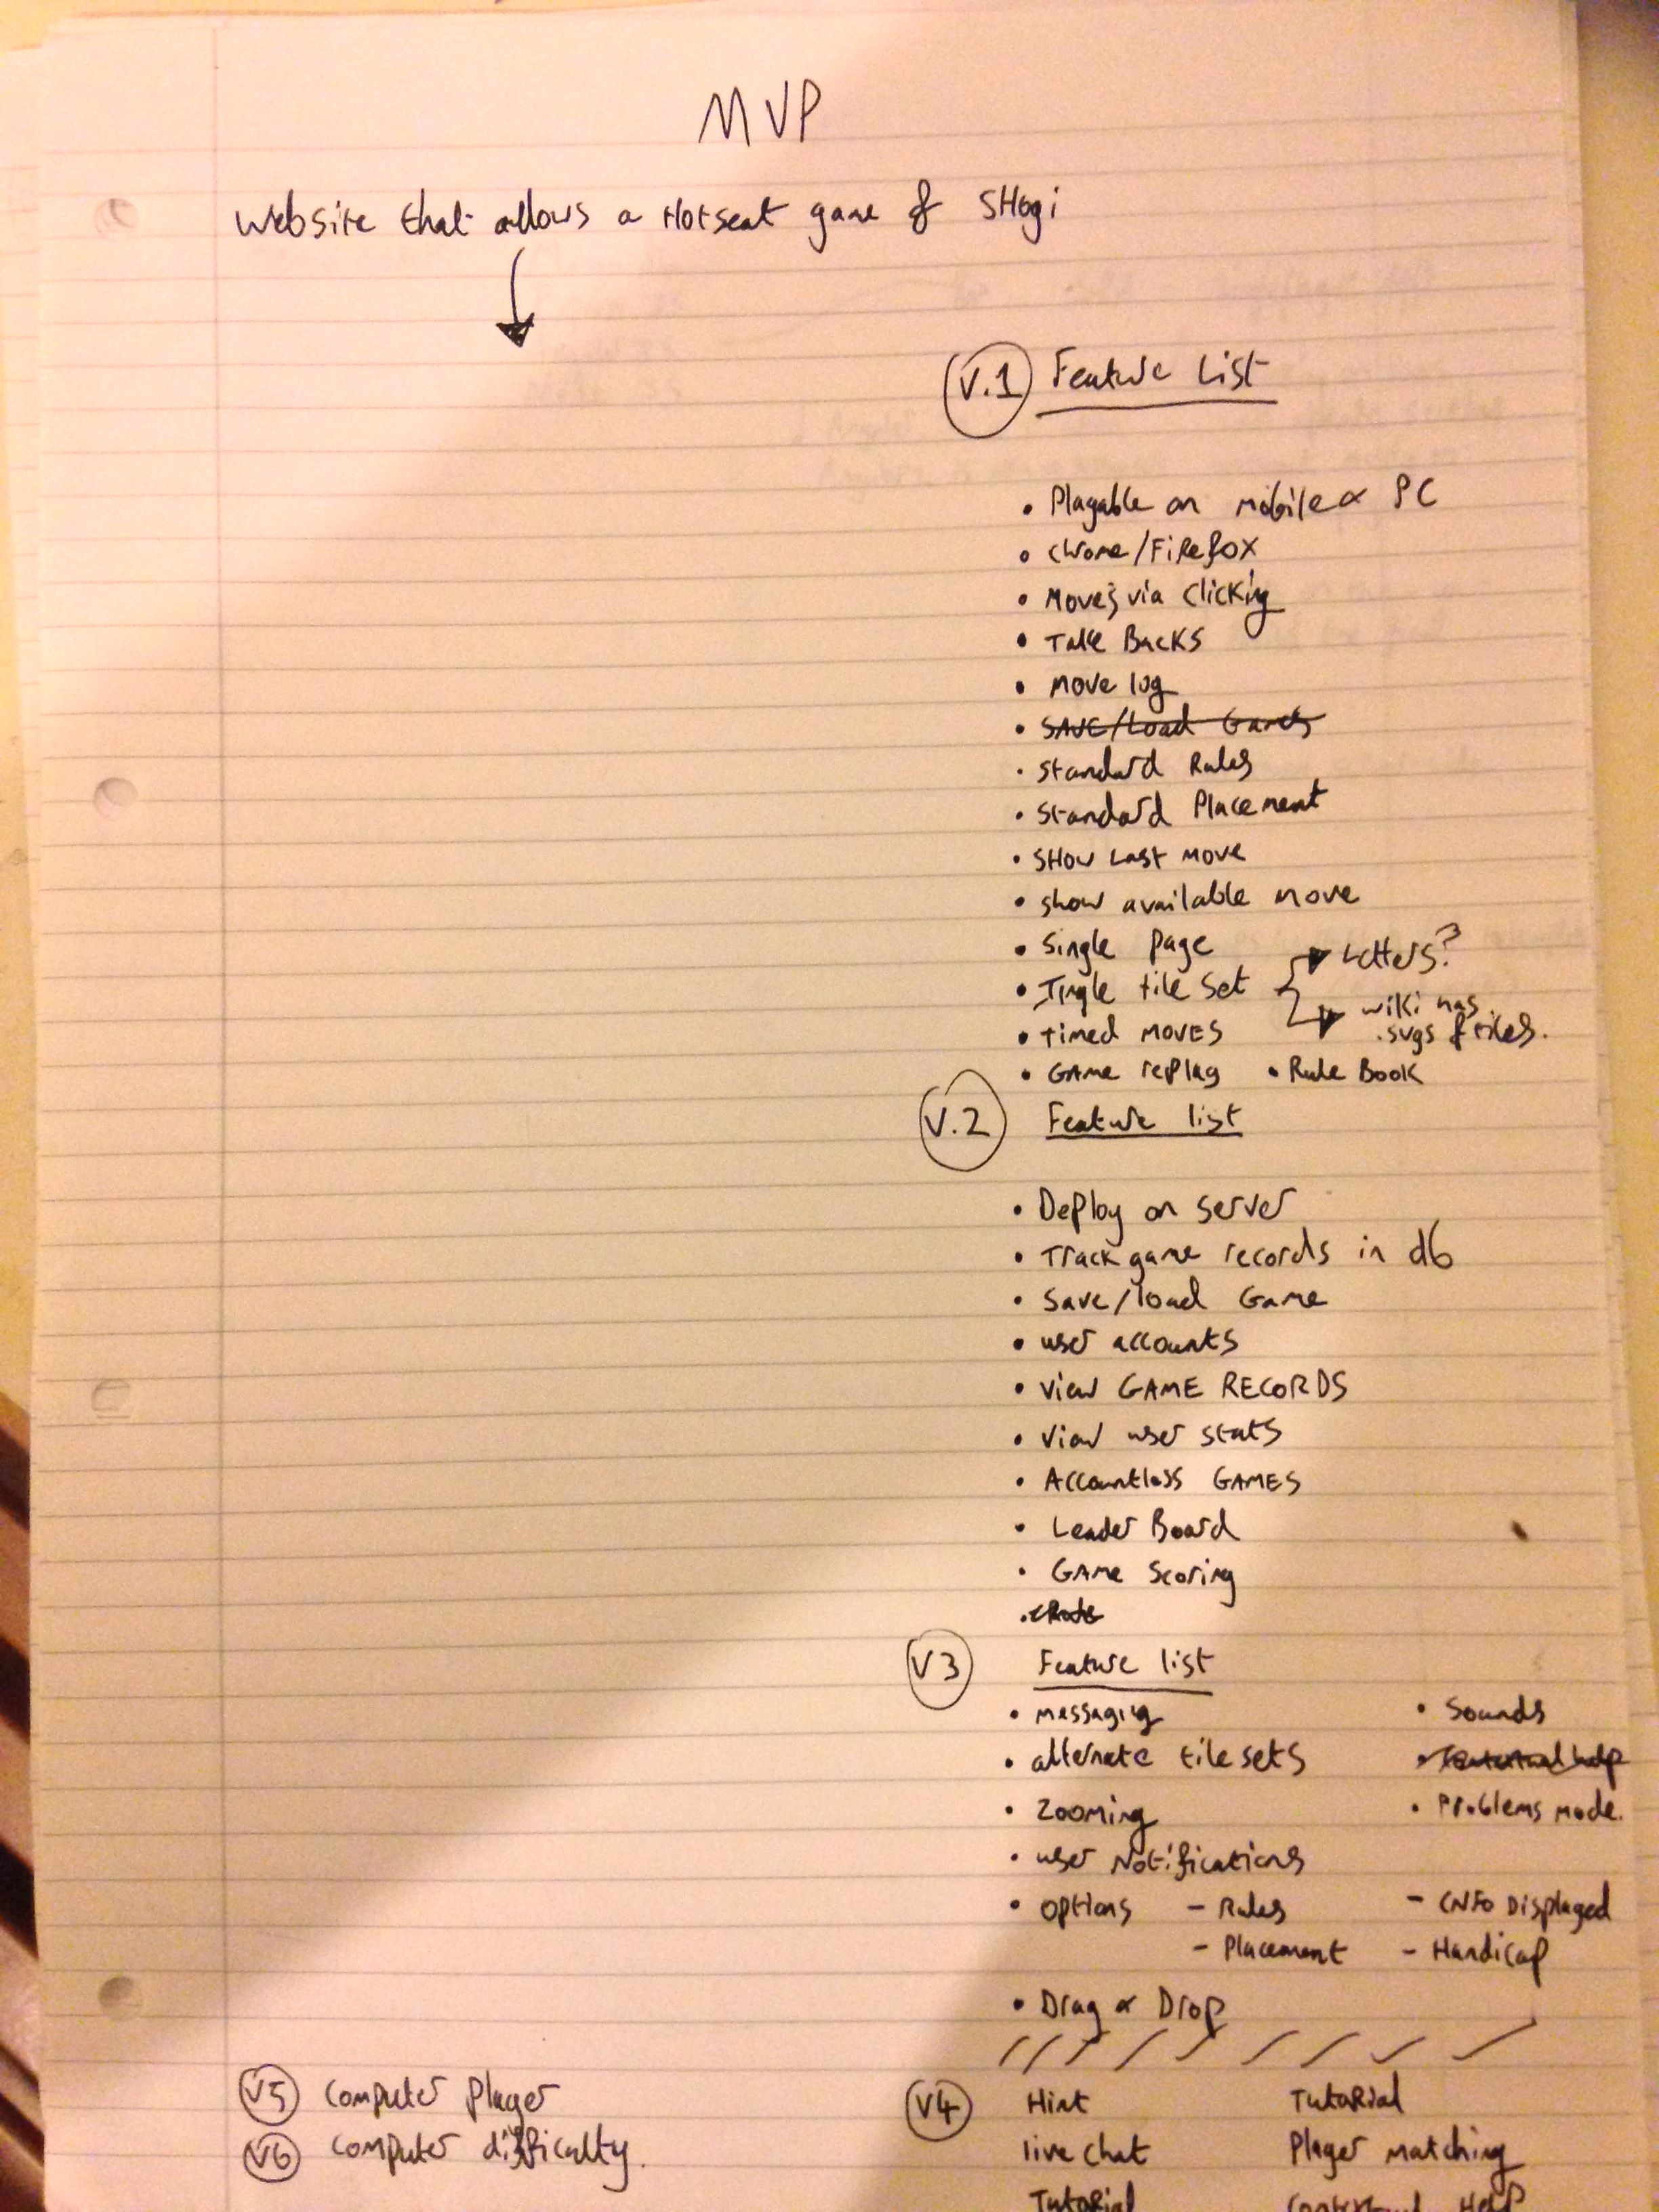 MVP
Website that allows a Hotseat game of SHogi
V.1 Feature List
• Playable on mobile & PC
• Chrome/Firefox
• Moves via Clicking
• Take Backs
• Move log
• SAVE/Load Games
• Standard Rules
• Standard Placement
• SHow Last Move
• show available move
• Single page
• Single tile set
Letters?
wiki has
.svgs of tiles.
• Timed MOVES
• GAME replay • Rule Book
V.2 Feature list
• Deploy on server
• Track game records in db
• Save/load Game
• user accounts
• view GAME RECORDS
• view user stats
• Accountless GAMES
• Leader Board
• GAME Scoring
V3 Feature list
• messaging • Sounds
• alternate tile sets • Contextual help
• Zooming • Problems mode.
• user Notifications
• options - Rules - INFO Displayed
- Placement - Handicap
• Drag & Drop
V5 Computer Player
V6 Computer difficulty.
V4 Hint Tutorial
live chat Player matching
Tutorial Contextual Help